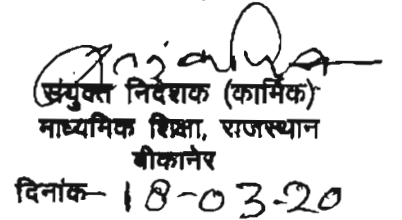 संयुक्त निदेशक (कार्मिक)
माध्यमिक शिक्षा, राजस्थान
बीकानेर
दिनांक- 18-03-20